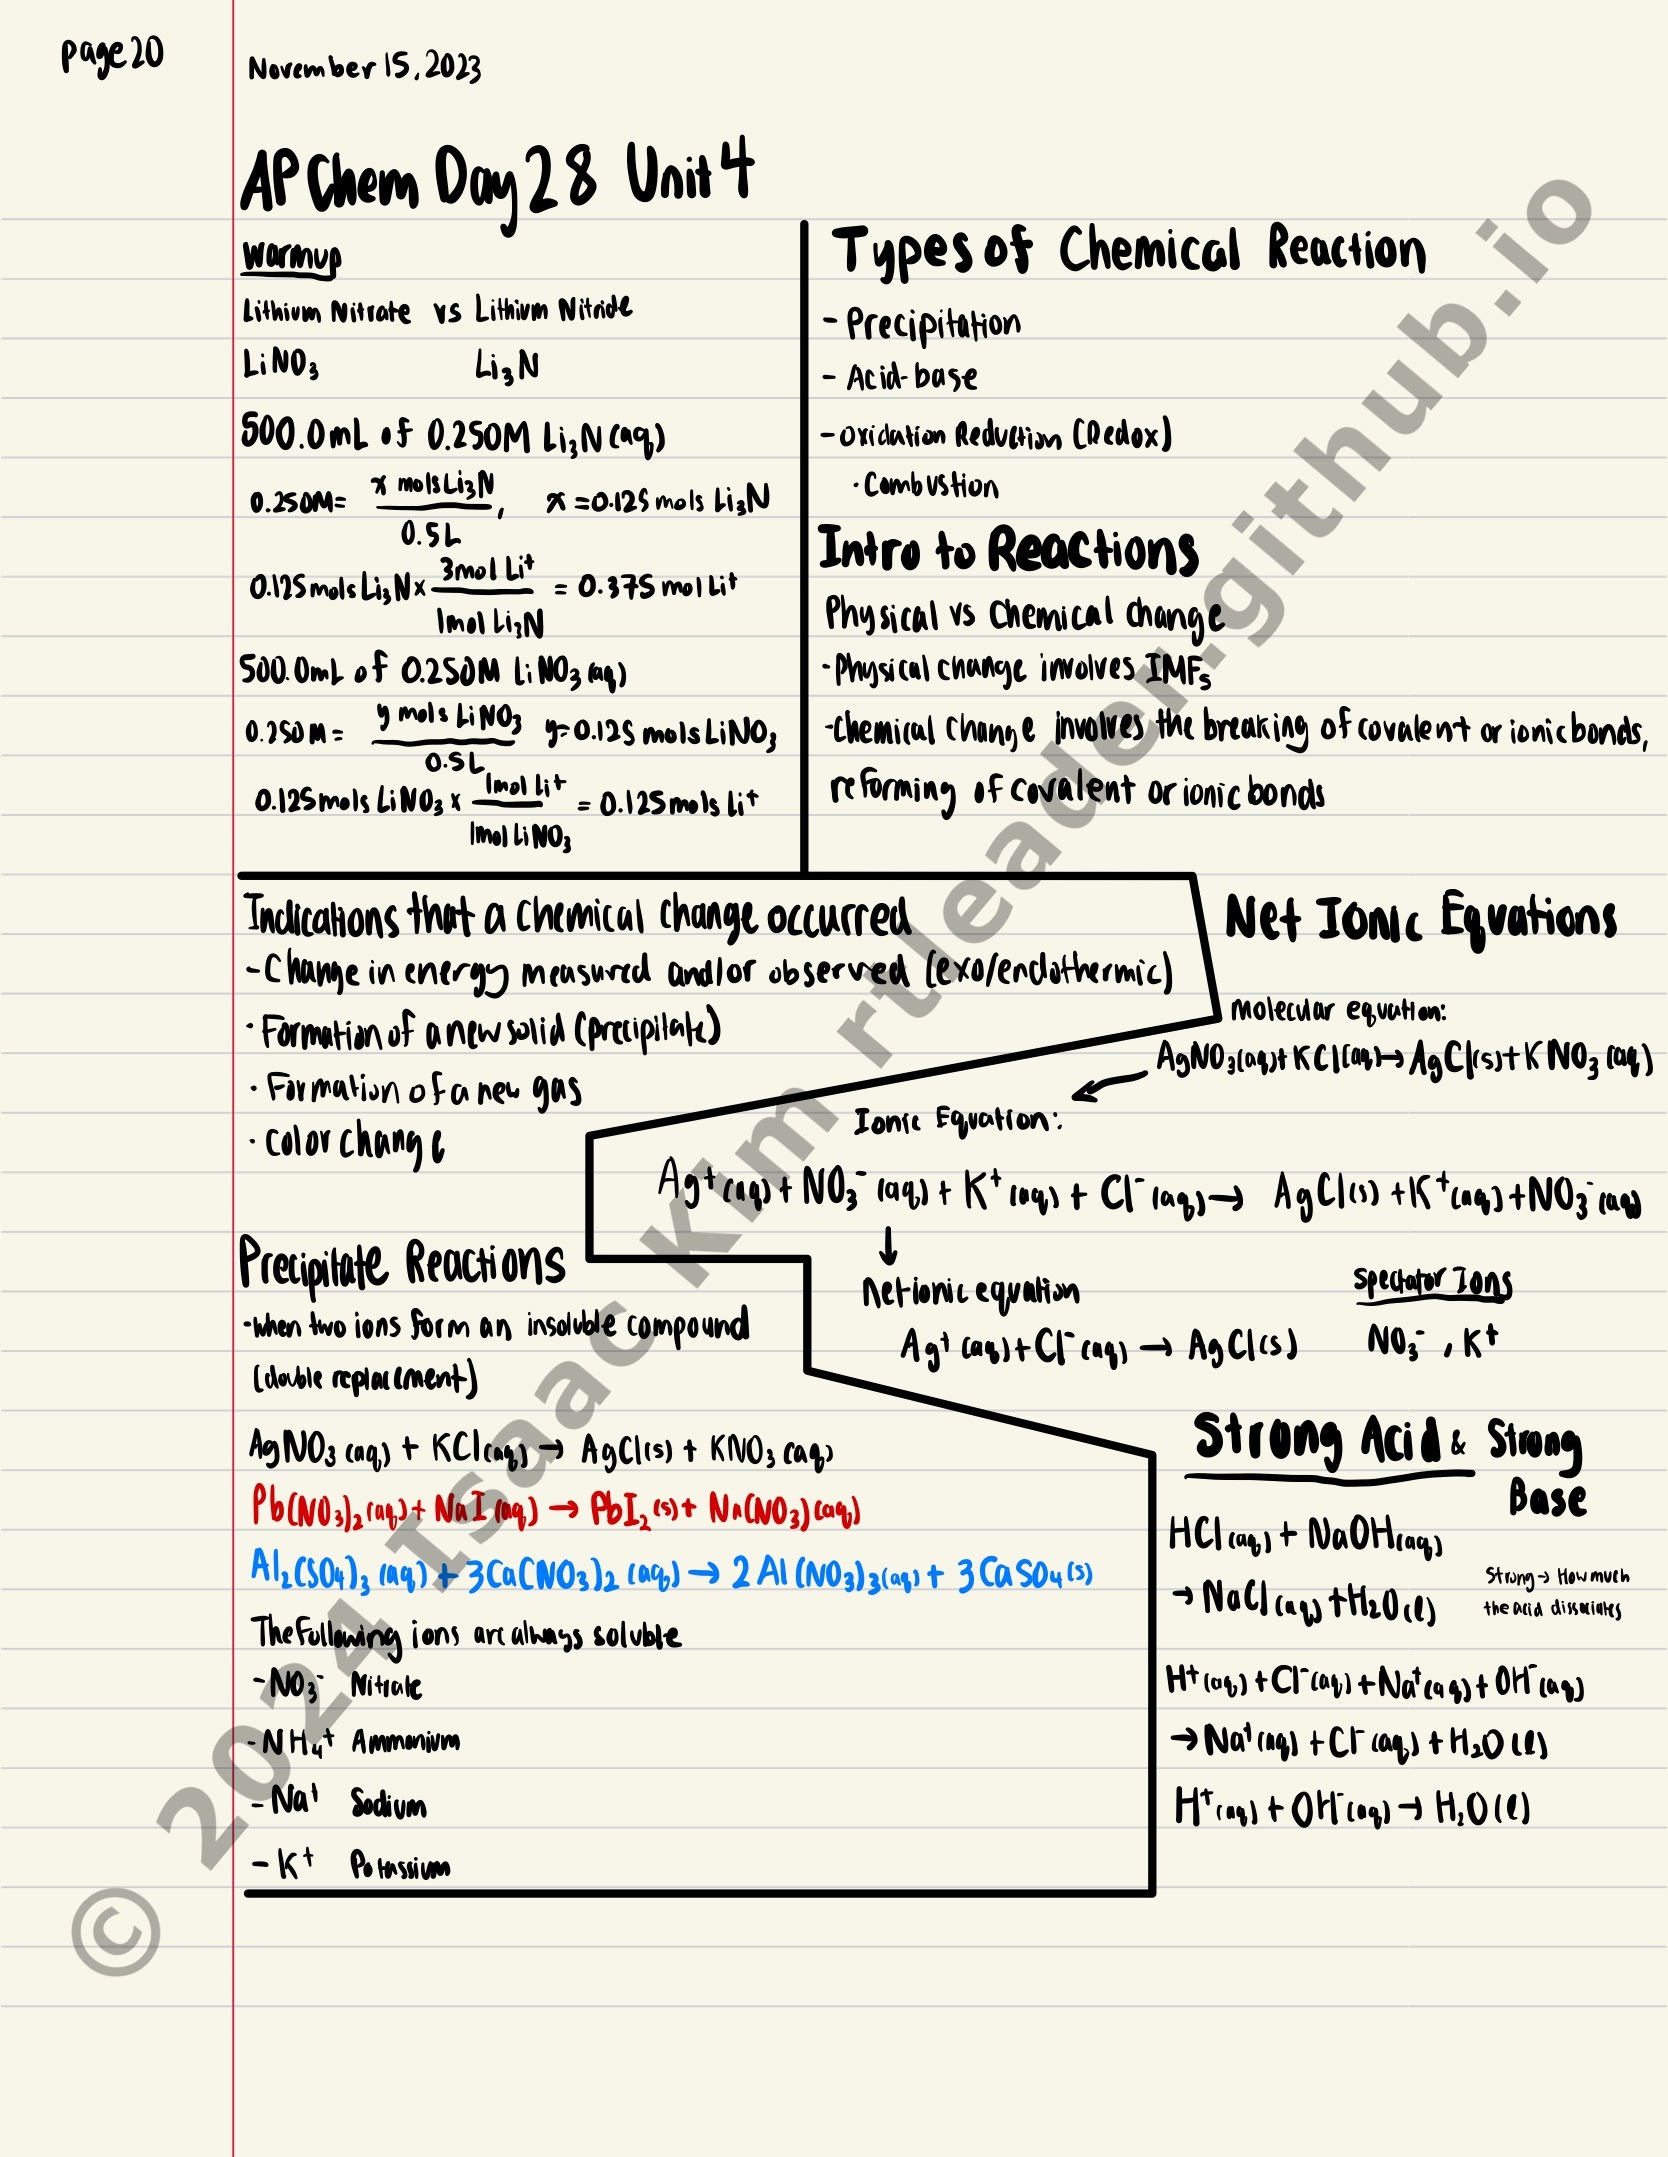 page 20
November 15, 2023
AP Chem Day 28 Unit 4
Warmup
Lithium Nitrate vs Lithium Nitride
LiNO₃ Li₃N
500.0mL of 0.250M Li₃N (aq)
0.250M = x mols Li₃N / 0.5L , x = 0.125 mols Li₃N
0.125 mols Li₃N × 3mol Li⁺ / 1mol Li₃N = 0.375 mol Li⁺
500.0mL of 0.250M LiNO₃ (aq)
0.250M = y mols LiNO₃ / 0.5L y = 0.125 mols LiNO₃
0.125 mols LiNO₃ × 1mol Li⁺ / 1mol LiNO₃ = 0.125 mols Li⁺
Types of Chemical Reaction
- Precipitation
- Acid-base
- Oxidation Reduction (Redox)
· Combustion
Intro to Reactions
Physical vs Chemical change
· Physical change involves IMFs
· Chemical change involves the breaking of covalent or ionic bonds,
reforming of covalent or ionic bonds
Indications that a chemical change occurred
- Change in energy measured and/or observed (exo/endothermic)
· Formation of a new solid (precipitate)
· Formation of a new gas
· color change
Net Ionic Equations
molecular equation:
AgNO₃(aq) + KCl(aq) → AgCl(s) + KNO₃(aq)
Ionic Equation:
Ag⁺(aq) + NO₃⁻(aq) + K⁺(aq) + Cl⁻(aq) → AgCl(s) + K⁺(aq) + NO₃⁻(aq)
↓
Net ionic equation
Ag⁺(aq) + Cl⁻(aq) → AgCl(s)
Spectator Ions
NO₃⁻, K⁺
Precipitate Reactions
· when two ions form an insoluble compound
(double replacement)
AgNO₃(aq) + KCl(aq) → AgCl(s) + KNO₃(aq)
Pb(NO₃)₂(aq) + NaI(aq) → PbI₂(s) + Na(NO₃)(aq)
Al₂(SO₄)₃(aq) + 3Ca(NO₃)₂(aq) → 2Al(NO₃)₃(aq) + 3CaSO₄(s)
The following ions are always soluble
- NO₃⁻ Nitrate
- NH₄⁺ Ammonium
- Na⁺ Sodium
- K⁺ Potassium
Strong Acid & Strong
Base
HCl(aq) + NaOH(aq)
→ NaCl(aq) + H₂O(l)
Strong → How much
the acid dissociates
H⁺(aq) + Cl⁻(aq) + Na⁺(aq) + OH⁻(aq)
→ Na⁺(aq) + Cl⁻(aq) + H₂O(l)
H⁺(aq) + OH⁻(aq) → H₂O(l)
© 2024 Isaac Kim rtleader.github.io